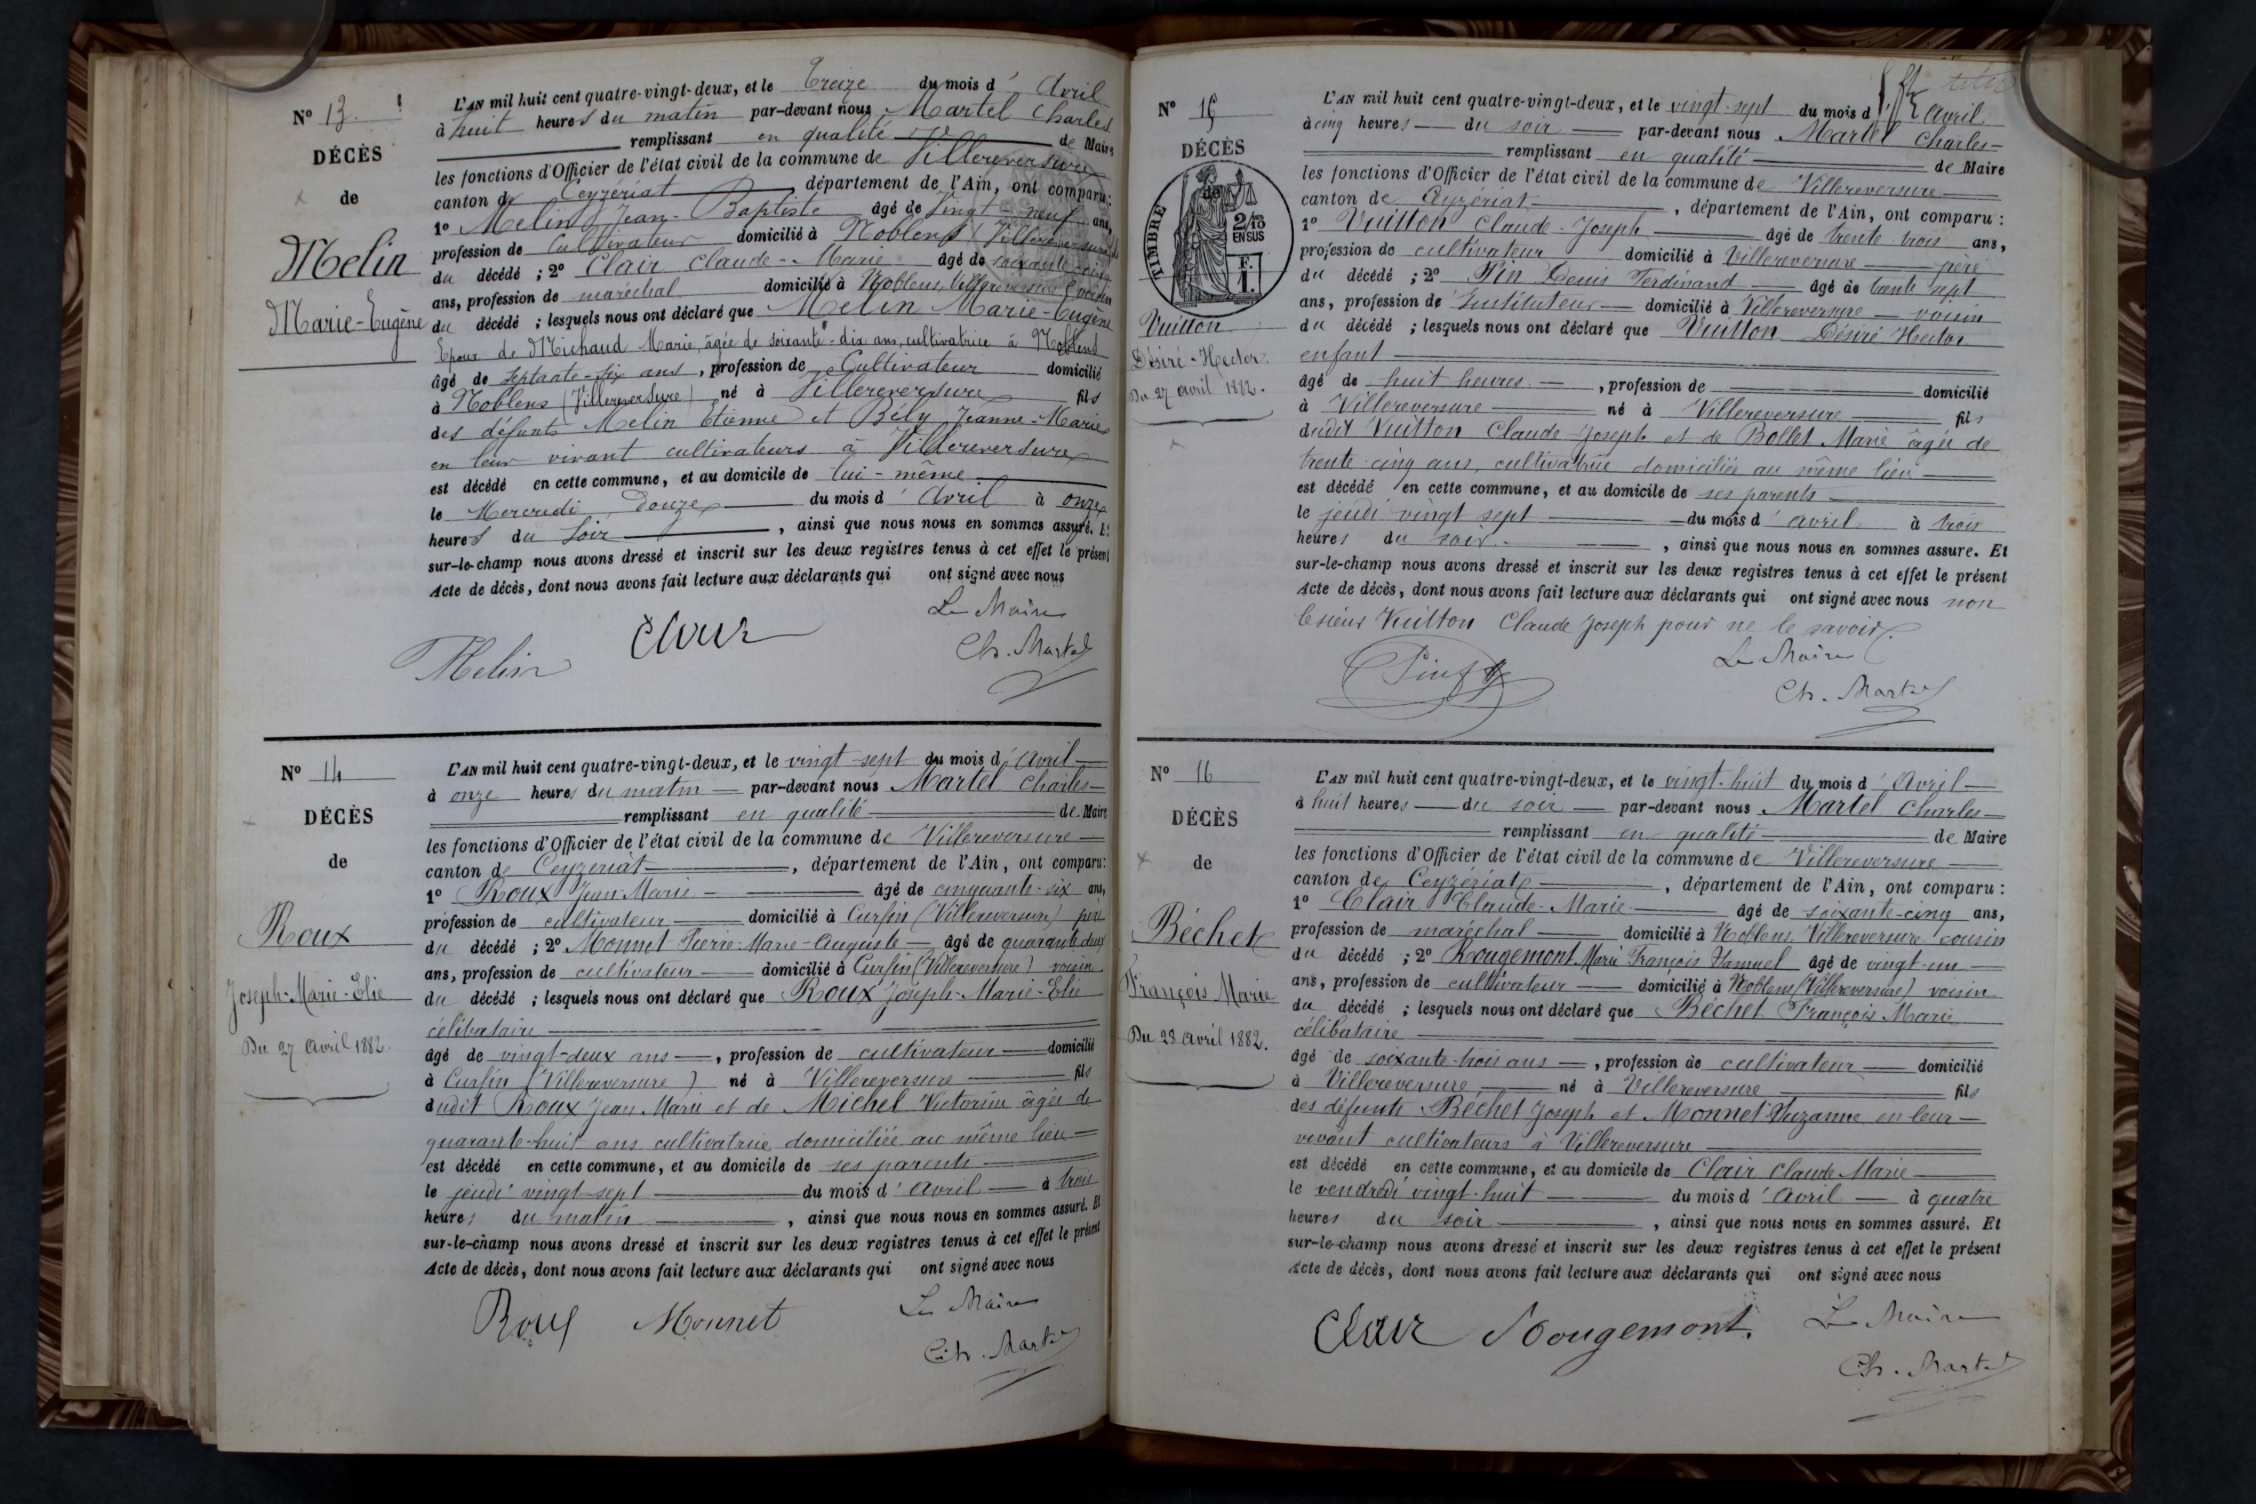 N° 13
DÉCÈS
de
Melin
Marie-Eugène
L'AN mil huit cent quatre-vingt-deux, et le Treize du mois d'Avril
à huit heures du matin par-devant nous Martel Charles
remplissant en qualité de Maire
les fonctions d'Officier de l'état civil de la commune de Villereversure
canton de Ceyzériat, département de l'Ain, ont comparu:
1° Melin Jean-Baptiste âgé de vingt-neuf ans,
profession de Cultivateur domicilié à Noblens (Villereversure)
du décédé ; 2° Clair Claude-Marie âgé de soixante-cinq
ans, profession de maréchal domicilié à Noblens, Villereversure voisin
du décédé ; lesquels nous ont déclaré que Melin Marie-Eugène
Epoux de Michaud Marie, âgée de soixante-dix ans, cultivatrice à Noblens
âgé de septante-six ans, profession de Cultivateur domicilié
à Noblens (Villereversure) né à Villereversure fils
des défunts Melin Etienne et Bély Jeanne-Marie
en leur vivant cultivateurs à Villereversure
est décédé en cette commune, et au domicile de lui-même
le Mercredi Douze du mois d'Avril à onze
heures du soir, ainsi que nous nous en sommes assuré. Et
sur-le-champ nous avons dressé et inscrit sur les deux registres tenus à cet effet le présent
Acte de décès, dont nous avons fait lecture aux déclarants qui ont signé avec nous
Le Maire
Melin Clair Ch. Martel
N° 14
DÉCÈS
de
Roux
Joseph-Marie-Elie
Du 27 avril 1882.
L'AN mil huit cent quatre-vingt-deux, et le vingt-sept du mois d'Avril
à onze heures du matin par-devant nous Martel Charles
remplissant en qualité de Maire
les fonctions d'Officier de l'état civil de la commune de Villereversure
canton de Ceyzériat, département de l'Ain, ont comparu:
1° Roux Jean Marie âgé de cinquante-six ans,
profession de cultivateur domicilié à Cursin (Villereversure) père
du décédé ; 2° Monnet Pierre-Marie-Auguste âgé de quarante deux
ans, profession de cultivateur domicilié à Cursin (Villereversure) voisin
du décédé ; lesquels nous ont déclaré que Roux Joseph-Marie-Elie
célibataire
âgé de vingt-deux ans, profession de cultivateur domicilié
à Cursin (Villereversure) né à Villereversure fils
dudit Roux Jean Marie et de Michel Victorine âgée de
quarante-huit ans cultivatrice domiciliée au même lieu
est décédé en cette commune, et au domicile de ses parents
le jeudi vingt-sept du mois d'avril à trois
heures du matin, ainsi que nous nous en sommes assuré. Et
sur-le-champ nous avons dressé et inscrit sur les deux registres tenus à cet effet le présent
Acte de décès, dont nous avons fait lecture aux déclarants qui ont signé avec nous
Roux Monnet Le Maire
Ch. Martel
N° 15
DÉCÈS
de
TIMBRE
2/10
EN SUS
F.
1.
Vuitton
Désiré-Hector.
Du 27 avril 1882.
L'AN mil huit cent quatre-vingt-deux, et le vingt-sept du mois d'avril
à cinq heures du soir par-devant nous Martel Charles
remplissant en qualité de Maire
les fonctions d'Officier de l'état civil de la commune de Villereversure
canton de Ceyzériat, département de l'Ain, ont comparu :
1° Vuitton Claude-Joseph âgé de trente trois ans,
profession de cultivateur domicilié à Villereversure père
du décédé ; 2° Pin Denis Ferdinand âgé de trente sept
ans, profession de Instituteur domicilié à Villereversure voisin
du décédé ; lesquels nous ont déclaré que Vuitton Désiré Hector
enfant
âgé de huit heures, profession de domicilié
à Villereversure né à Villereversure fils
dudit Vuitton Claude Joseph et de Bollet Marie âgée de
trente-cinq ans, cultivatrice domiciliée au même lieu
est décédé en cette commune, et au domicile de ses parents
le jeudi vingt sept du mois d'avril à trois
heures du soir, ainsi que nous nous en sommes assuré. Et
sur-le-champ nous avons dressé et inscrit sur les deux registres tenus à cet effet le présent
Acte de décès, dont nous avons fait lecture aux déclarants qui ont signé avec nous non
le sieur Vuitton Claude Joseph pour ne le savoir.
Le Maire
Ch. Martel
N° 16
DÉCÈS
de
Béchet
François Marie
Du 28 avril 1882.
L'AN mil huit cent quatre-vingt-deux, et le vingt-huit du mois d'Avril
à huit heures du soir par-devant nous Martel Charles
remplissant en qualité de Maire
les fonctions d'Officier de l'état civil de la commune de Villereversure
canton de Ceyzériat, département de l'Ain, ont comparu :
1° Clair Claude-Marie âgé de soixante-cinq ans,
profession de maréchal domicilié à Noblens, Villereversure cousin
du décédé ; 2° Rougemont Marie François Samuel âgé de vingt-un
ans, profession de cultivateur domicilié à Noblens (Villereversure) voisin
du décédé ; lesquels nous ont déclaré que Béchet François Marie
célibataire
âgé de soixante-trois ans, profession de cultivateur domicilié
à Villereversure né à Villereversure fils
des défunts Béchet Joseph et Monnet Suzanne en leur
vivant cultivateurs à Villereversure
est décédé en cette commune, et au domicile de Clair Claude Marie
le vendredi vingt-huit du mois d'avril à quatre
heures du soir, ainsi que nous nous en sommes assuré. Et
sur-le-champ nous avons dressé et inscrit sur les deux registres tenus à cet effet le présent
Acte de décès, dont nous avons fait lecture aux déclarants qui ont signé avec nous
Clair Rougemont. Le Maire
Ch. Martel